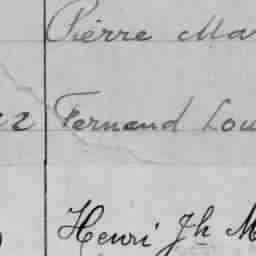 Pierre Ma
22 Fernand Lou
Henri Jh M